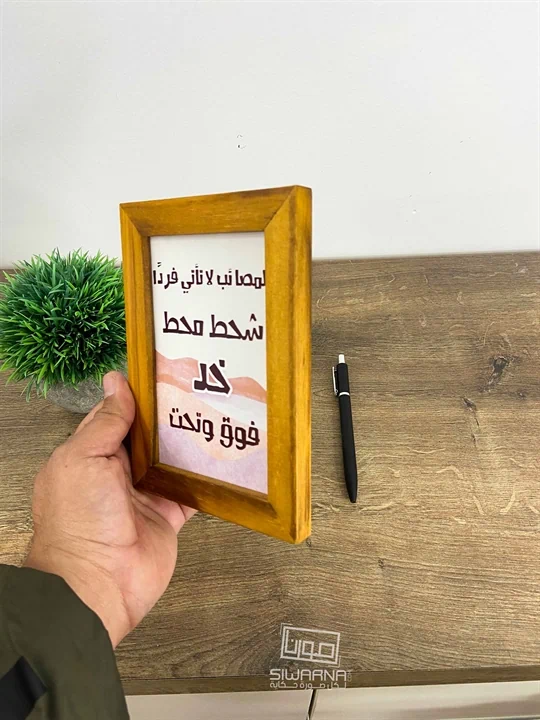 لمصائب لا تأتي فردًا
شحط محط
خد
فوق وتحت
صورنا
SIWARNA
لكل صورة حكاية